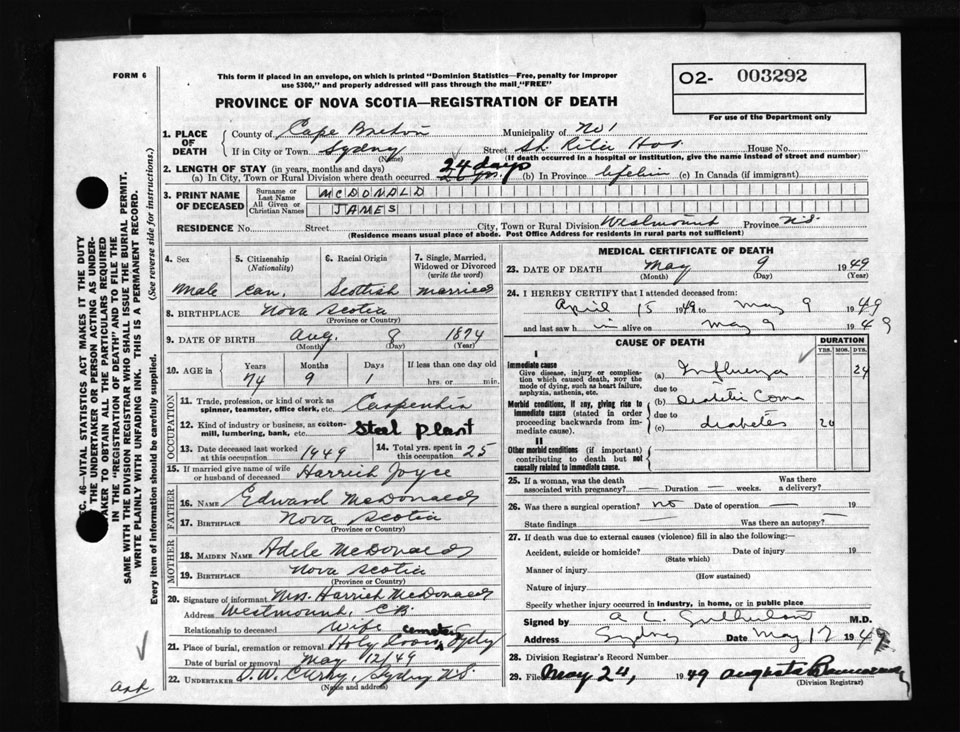 FORM 6
This form if placed in an envelope, on which is printed "Dominion Statistics—Free, penalty for improper
use $300," and properly addressed will pass through the mail "FREE"
O2- 003292
For use of the Department only
PROVINCE OF NOVA SCOTIA—REGISTRATION OF DEATH
1. PLACE OF DEATH
County of Cape Breton Municipality of No 1
If in City or Town Sydney (Name) Street St. Rita Hos. House No.
(If death occurred in a hospital or institution, give the name instead of street and number)
2. LENGTH OF STAY (in years, months and days)
(a) In City, Town or Rural Division where death occurred 24 days (b) In Province lifetime (c) In Canada (if immigrant)
3. PRINT NAME OF DECEASED
Surname or Last Name MCDONALD
All Given or Christian Names JAMES
RESIDENCE No. Street City, Town or Rural Division Westmount Province N.S.
(Residence means usual place of abode. Post Office Address for residents in rural parts not sufficient)
4. Sex 5. Citizenship (Nationality) 6. Racial Origin 7. Single, Married, Widowed or Divorced (write the word)
Male Can. Scottish Married
8. BIRTHPLACE Nova Scotia
(Province or Country)
9. DATE OF BIRTH Aug. 8 1874
(Month) (Day) (Year)
10. AGE in Years Months Days If less than one day old
74 9 1 hrs. or min.
OCCUPATION
11. Trade, profession, or kind of work as spinner, teamster, office clerk, etc. Carpenter
12. Kind of industry or business, as cotton-mill, lumbering, bank, etc. Steel Plant
13. Date deceased last worked at this occupation 1949 14. Total yrs. spent in this occupation 25
15. If married give name of wife or husband of deceased Harriet Joyce
FATHER
16. NAME Edward McDonald
17. BIRTHPLACE Nova Scotia
(Province or Country)
MOTHER
18. MAIDEN NAME Adele McDonald
19. BIRTHPLACE Nova Scotia
(Province or Country)
20. Signature of informant Mrs. Harriet McDonald
Address Westmount, C.B.
Relationship to deceased Wife
21. Place of burial, cremation or removal Holy Cross cemetery Sydney
Date of burial or removal May 12/49
22. UNDERTAKER D.W. Curry, Sydney N.S.
(Name and address)
MEDICAL CERTIFICATE OF DEATH
23. DATE OF DEATH May 9 1949
(Month) (Day)
24. I HEREBY CERTIFY that I attended deceased from:
April 15 1949 to May 9 1949
and last saw him alive on May 9 1949
CAUSE OF DEATH
DURATION
YRS. MOS. DYS.
I
Immediate cause
Give disease, injury or complication which caused death, not the mode of dying, such as heart failure, asphyxia, asthenia, etc.
(a) Influenza 24
due to
(b) Diabetic Coma
Morbid conditions, if any, giving rise to immediate cause (stated in order proceeding backwards from immediate cause).
due to
(c) diabetes 20
II
Other morbid conditions (if important) contributing to death but not causally related to immediate cause.
25. If a woman, was the death associated with pregnancy? — Duration — weeks. Was there a delivery?
26. Was there a surgical operation? No Date of operation — 19
State findings — Was there an autopsy? —
27. If death was due to external causes (violence) fill in also the following:—
Accident, suicide or homicide? Date of injury 19
(State which)
Manner of injury
(How sustained)
Nature of injury
Specify whether injury occurred in industry, in home, or in public place
Signed by A. L. Sutherland M.D.
Address Sydney Date May 17 1949
28. Division Registrar's Record Number
29. Filed May 24, 1949 Augusta
(Division Registrar)
SEC. 46—VITAL STATISTICS ACT MAKES IT THE DUTY
OF THE UNDERTAKER OR PERSON ACTING AS UNDERTAKER TO OBTAIN ALL THE PARTICULARS REQUIRED
IN THE "REGISTRATION OF DEATH" AND TO FILE THE
SAME WITH THE DIVISION REGISTRAR WHO SHALL ISSUE THE BURIAL PERMIT.
WRITE PLAINLY WITH UNFADING INK. THIS IS A PERMANENT RECORD.
Every item of information should be carefully supplied. (See reverse side for instructions.)